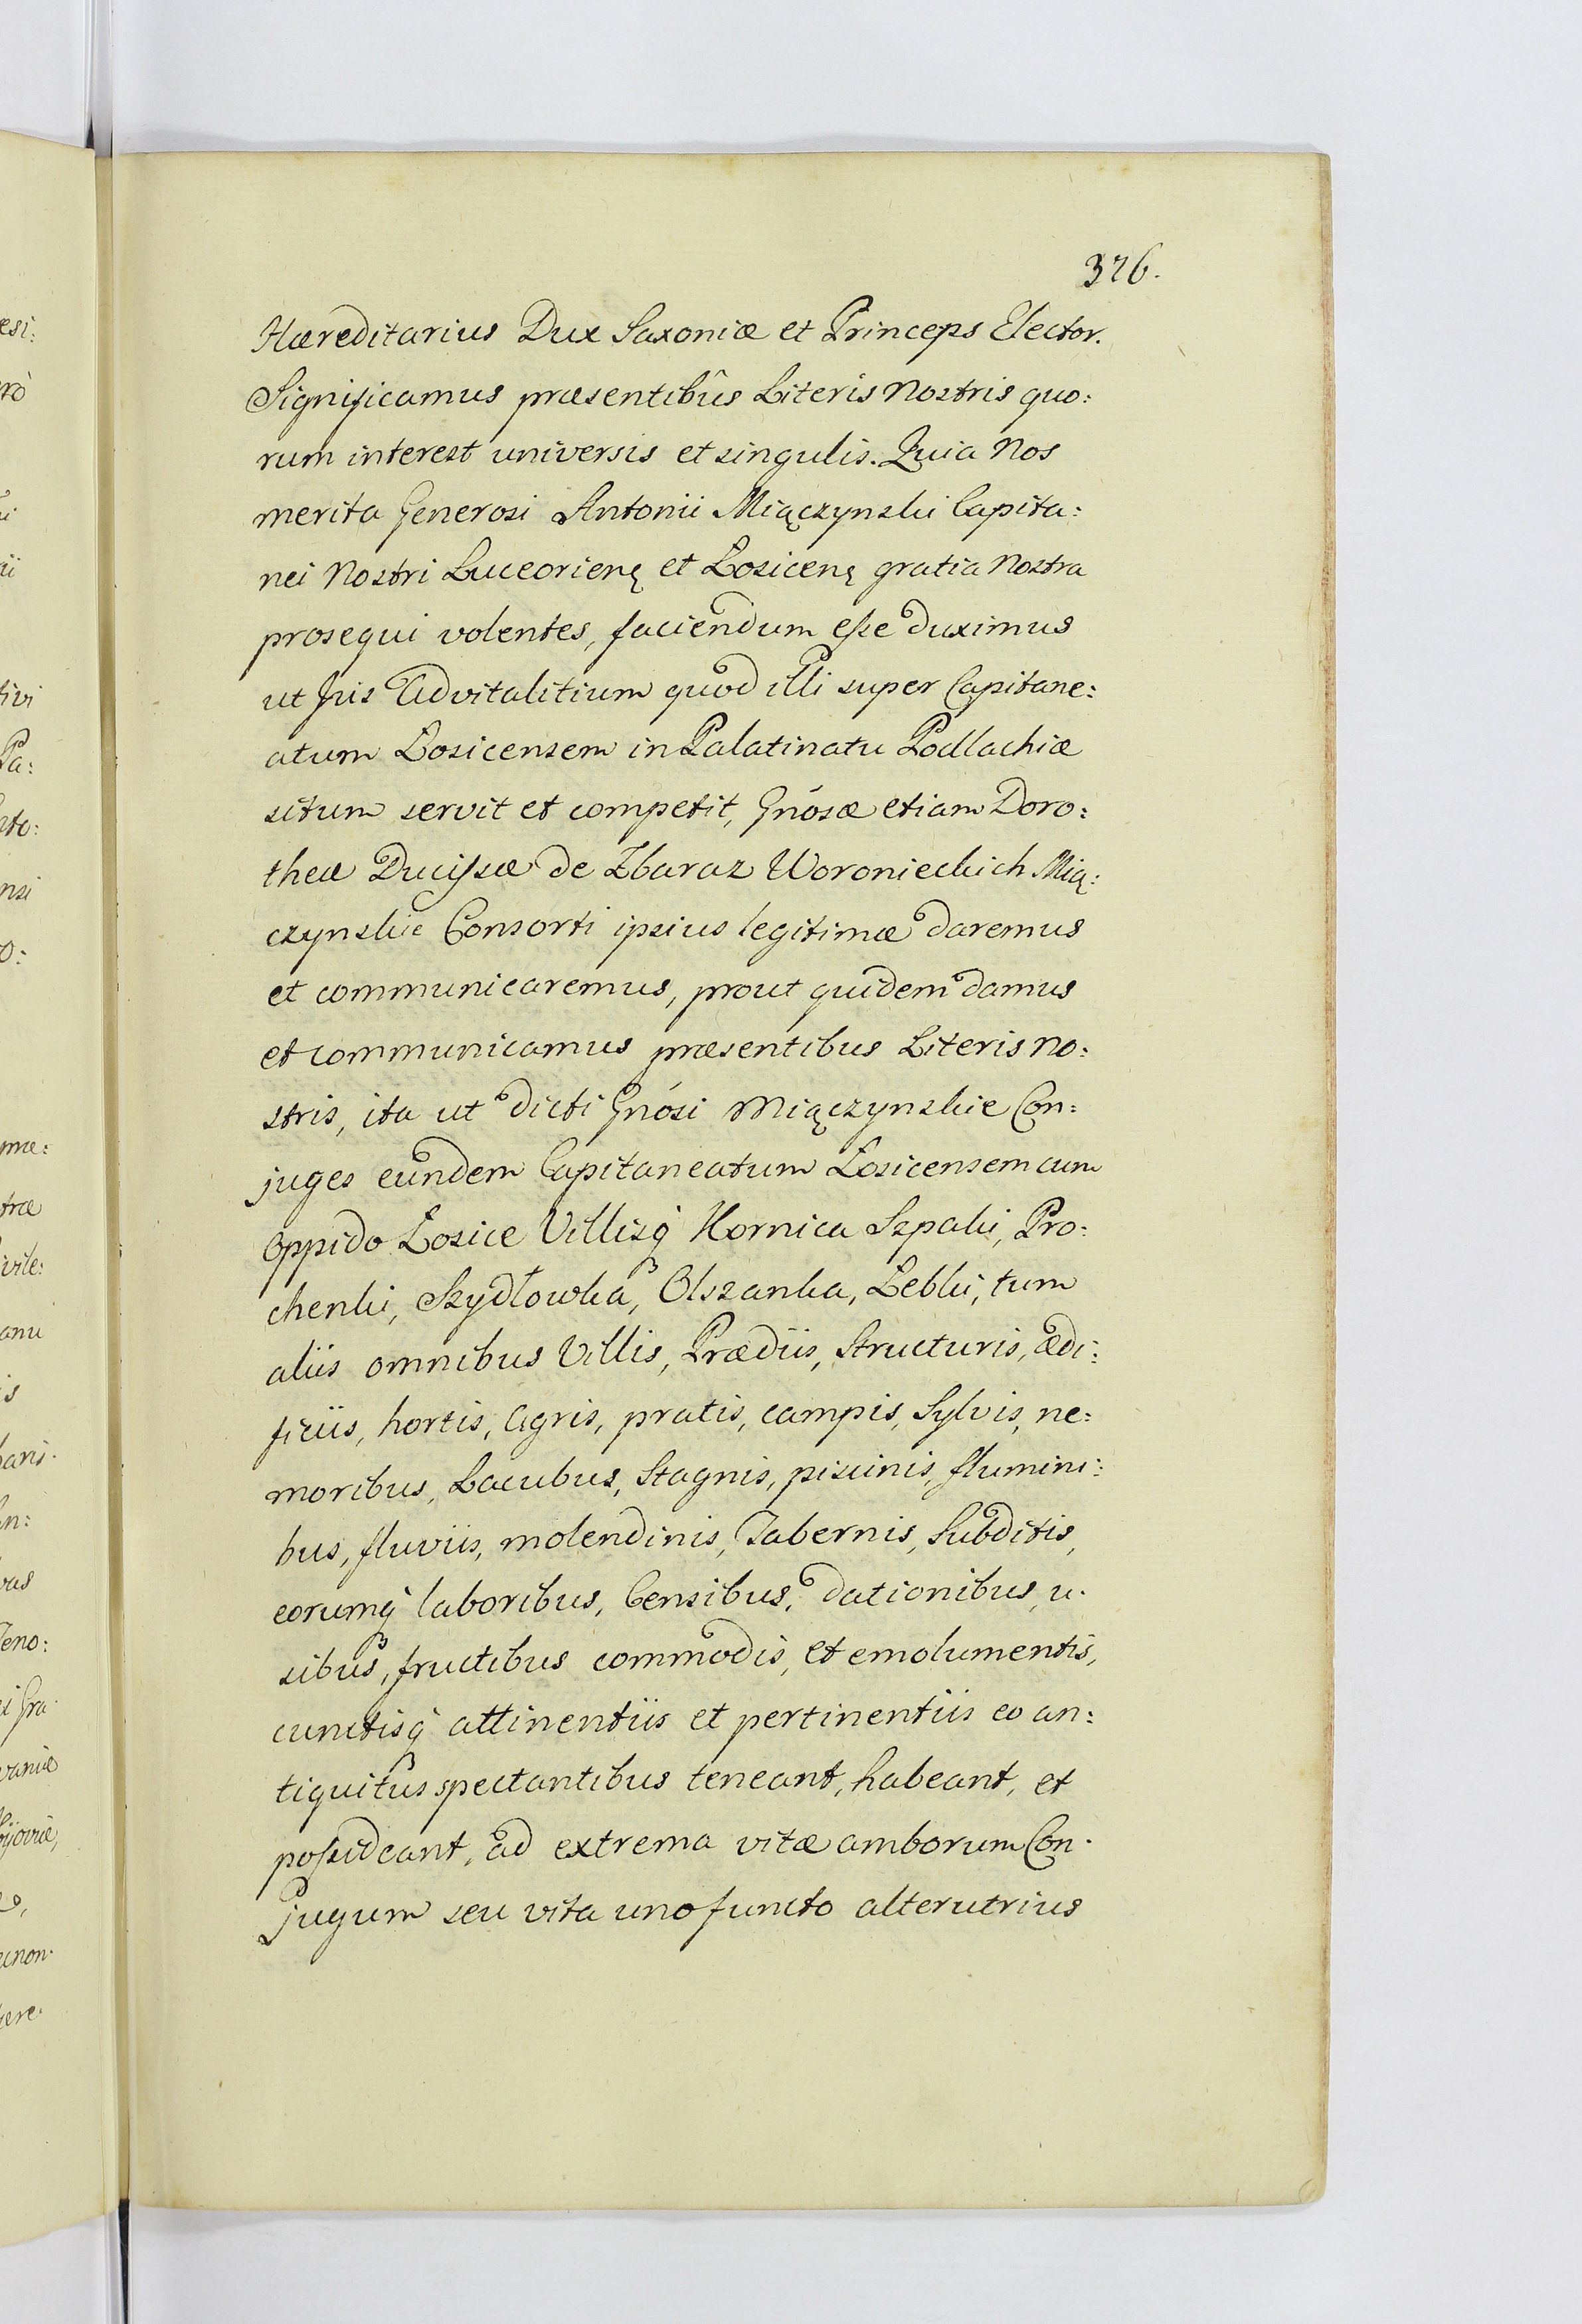 376.
Hæreditarius Dux Saxoniæ et Princeps Elector.
Significamus præsentibûs Literis Nostris quo:
rum interest universis et singulis. Quia Nos
merita Generosi Antonii Miączynski Capita:
nei Nostri Luceorienę et Łosicenę gratia Nostra
prosequi volentes, faciendum esse duximus
ut Jus Advitalitium quod illi super Capitane:
atum Łosicensem in Palatinatu Podlachiæ
situm servit et competit, Gnósæ etiam Doro:
theæ Ducissæ de Zbaraz Woronieckich Mią:
czynskie Consorti ipsius legitimæ daremus
et communicaremus, prout quidem damus
et communicamus præsentibus Literis No:
stris, ita ut dicti Gnósi Miączynskie Con:
juges eundem Capitaneatum Łosicensem cum
Oppido Łosice Villisq́ Hornica Szpaki, Pro:
chenki, Szydłowka, Olszanka, Łebki, tum
aliis omnibus Villis, Prædiis, Structuris, ædi:
ficiis, hortis, Agris, pratis, campis, Sylvis, ne:
moribus, Lacubus, Stagnis, piscinis, flumini:
bus, fluviis, molendinis, Tabernis, Subditis,
eorumq́ laboribus, Censibus, dationibus, u.
sibus, fructibus commodis, et emolumentis,
cunctisq́ attinentiis et pertinentiis eo an:
tiquitus spectantibus teneant, habeant, et
possideant, ad extrema vitæ amborum Con.
jugum seu vita uno functo alterutrius